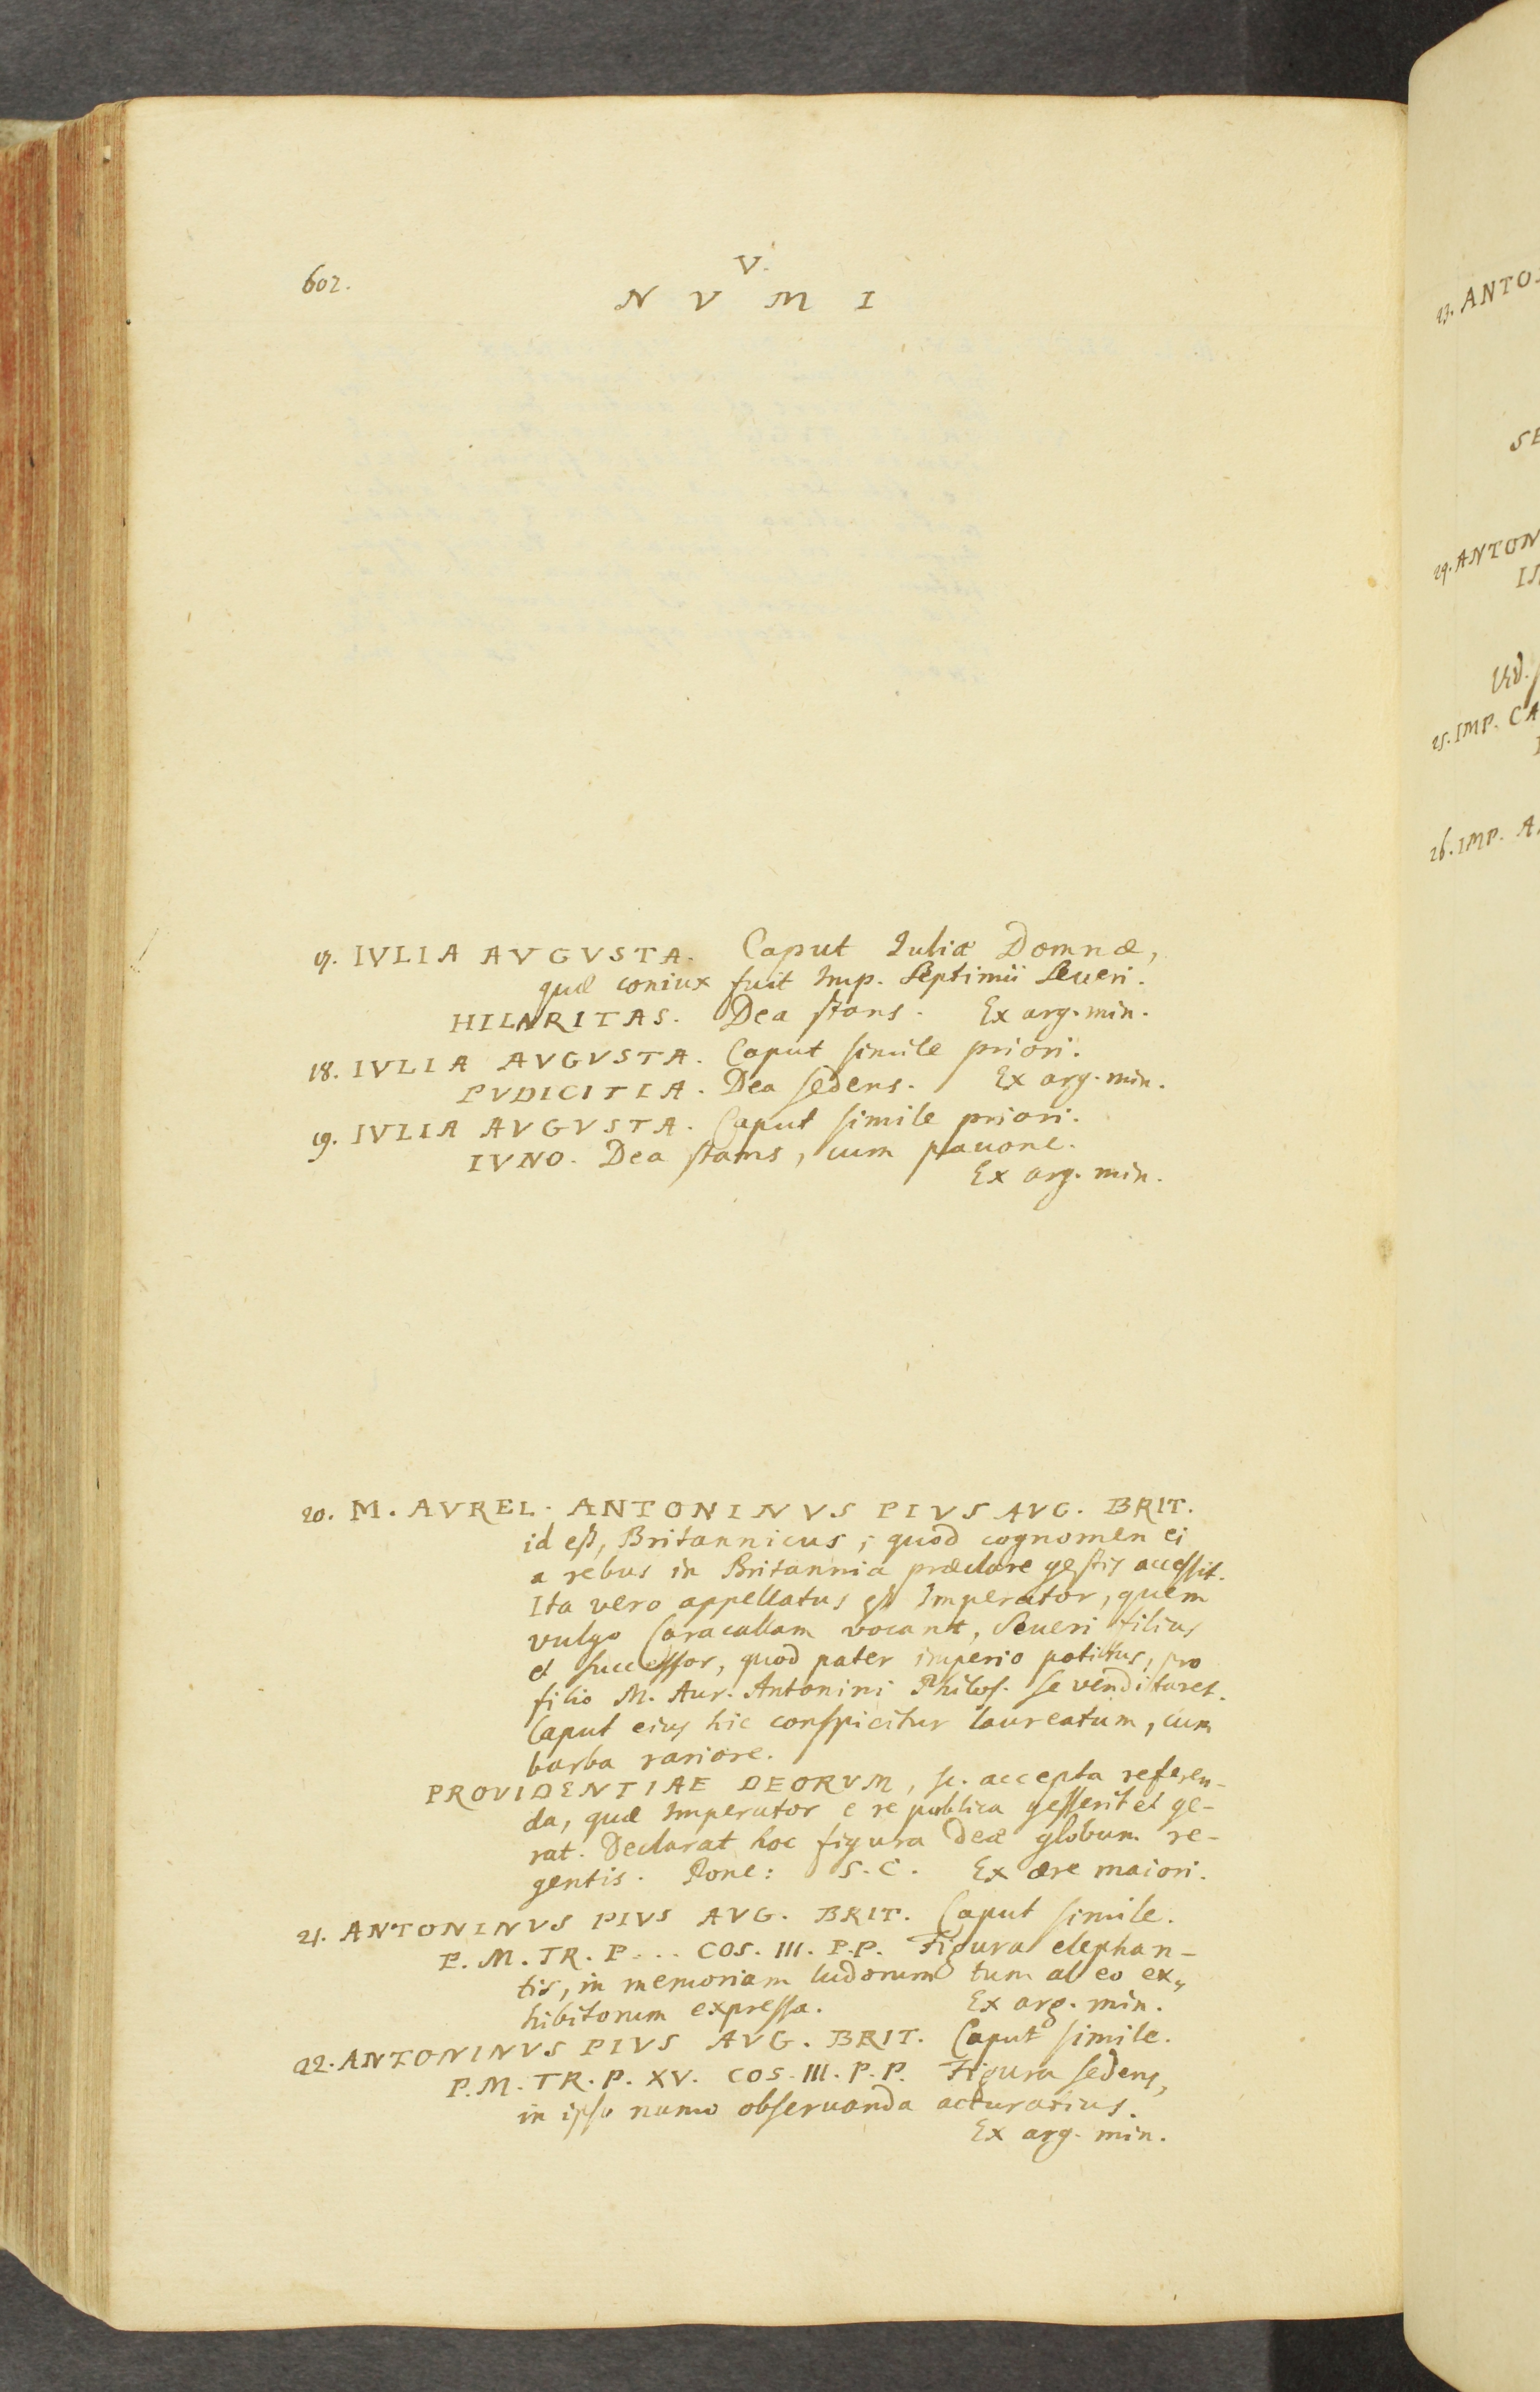 602.
V.
N V M I
17. IVLIA AVGVSTA. Caput Iuliæ Domnæ,
quæ coniux fuit Imp. Septimii Seueri.
HILARITAS. Dea stans. Ex arg. min.
18. IVLIA AVGVSTA. Caput simile priori.
PVDICITIA. Dea sedens. Ex arg. min.
19. IVLIA AVGVSTA. Caput simile priori.
IVNO. Dea stans, cum pauone.
Ex arg. min.
20. M. AVREL. ANTONINVS PIVS AVG. BRIT.
id est, Britannicus; quod cognomen ei
a rebus in Britannia præclare gestis accessit.
Ita vero appellatus est Imperator, quem
vulgo Caracallam vocant, Seueri filius
et successor, quod pater imperio potitus, pro
filio M. Aur. Antonini Philos. se venditaret.
Caput eius hic conspicitur laureatum, cum
barba rariore.
PROVIDENTIAE DEORVM, sc. accepta referen-
da, quæ Imperator e re publica gesserit et ge-
rat. Declarat hoc figura deæ globum re-
gentis. Pone: S. C. Ex ære maiori.
21. ANTONINVS PIVS AVG. BRIT. Caput simile.
P. M. TR. P... COS. III. P.P. Figura elephan-
tis, in memoriam ludorum tum ab eo ex-
hibitorum expressa. Ex arg. min.
22. ANTONINVS PIVS AVG. BRIT. Caput simile.
P. M. TR. P. XV. COS. III. P. P. Figura sedens,
in ipso numo obseruanda accuratius.
Ex arg. min.
23. ANTO
SE
24. ANTON
IS
Vid.
25. IMP. CA
26. IMP. A